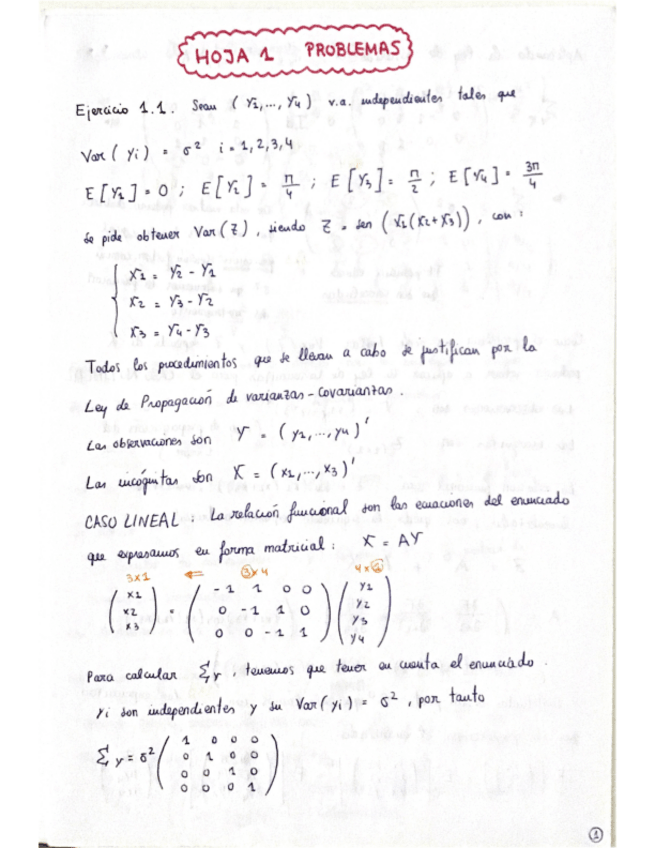 HOJA 1 PROBLEMAS
Ejercicio 1.1. Sean (Y1,..., Y4) v.a. independientes tales que
Var(Yi) = σ² i=1,2,3,4
E[Y1] = 0 ; E[Y2] = π/4 ; E[Y3] = π/2 ; E[Y4] = 3π/4
Se pide obtener Var(Z), siendo Z = sen (X1(X2+X3)), con:
X1 = Y2 - Y1
X2 = Y3 - Y2
X3 = Y4 - Y3
Todos los procedimientos que se llevan a cabo se justifican por la
Ley de Propagación de varianzas-covarianzas.
Las observaciones son Y = (y1,..., y4)'
Las incógnitas son X = (x1,..., x3)'
CASO LINEAL: La relación funcional son las ecuaciones del enunciado
que expresamos en forma matricial: X = AY
3x1 ⇐ 3x4 4x1
(x1 x2 x3) = (-1 1 0 0
0 -1 1 0
0 0 -1 1) (y1 y2 y3 y4)
Para calcular Σy, tenemos que tener en cuenta el enunciado.
Yi son independientes y su Var(yi) = σ², por tanto
Σy = σ² (1 0 0 0
0 1 0 0
0 0 1 0
0 0 0 1)
1